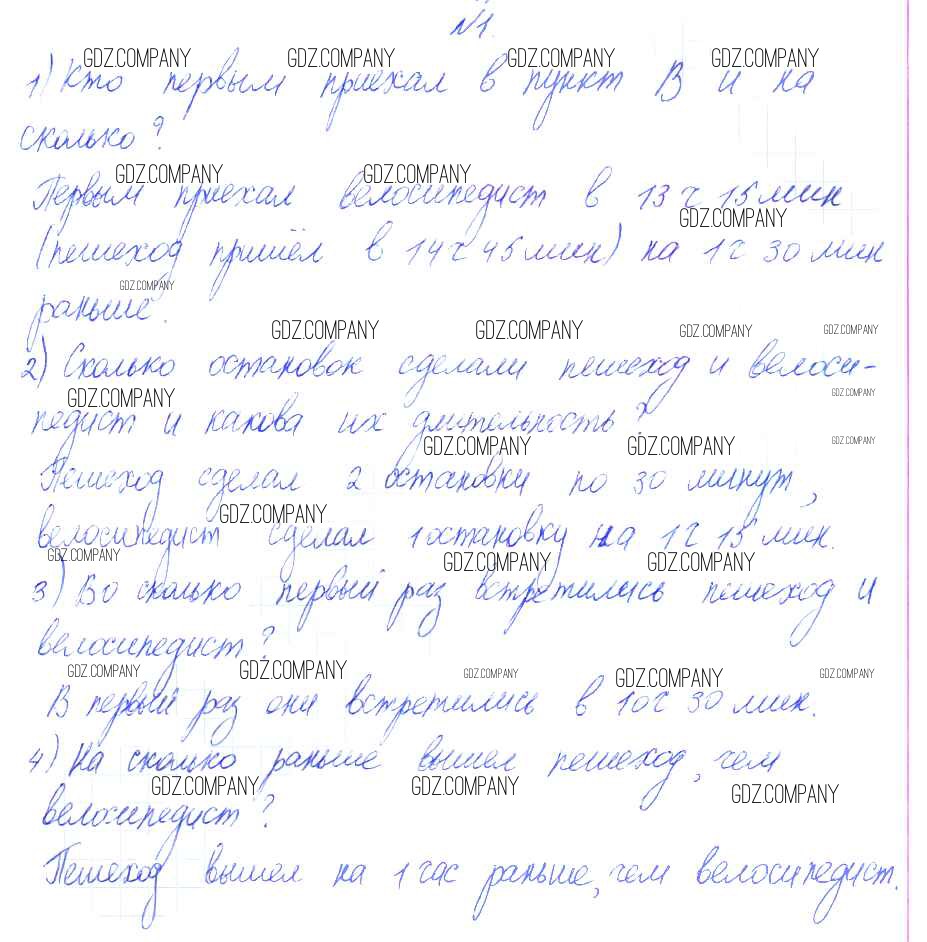 №1.
GDZ.COMPANY GDZ.COMPANY GDZ.COMPANY GDZ.COMPANY
1) Кто первым приехал в пункт В и на
сколько?
GDZ.COMPANY GDZ.COMPANY
Первым приехал велосипедист в 13 ч 15 мин
GDZ.COMPANY
(пешеход пришёл в 14 ч 45 мин) на 1 ч 30 мин
GDZ.COMPANY
раньше.
GDZ.COMPANY GDZ.COMPANY GDZ.COMPANY GDZ.COMPANY
2) Сколько остановок сделали пешеход и велоси-
GDZ.COMPANY GDZ.COMPANY
педист и какова их длительность?
GDZ.COMPANY GDZ.COMPANY GDZ.COMPANY
Пешеход сделал 2 остановки по 30 минут,
GDZ.COMPANY
велосипедист сделал 1 остановку на 1 ч 15 мин.
GDZ.COMPANY GDZ.COMPANY GDZ.COMPANY
3) Во сколько первый раз встретились пешеход и
велосипедист?
GDZ.COMPANY GDZ.COMPANY GDZ.COMPANY GDZ.COMPANY GDZ.COMPANY
В первый раз они встретились в 10 ч 30 мин.
4) На сколько раньше вышел пешеход, чем
GDZ.COMPANY GDZ.COMPANY GDZ.COMPANY
велосипедист?
Пешеход вышел на 1 час раньше, чем велосипедист.